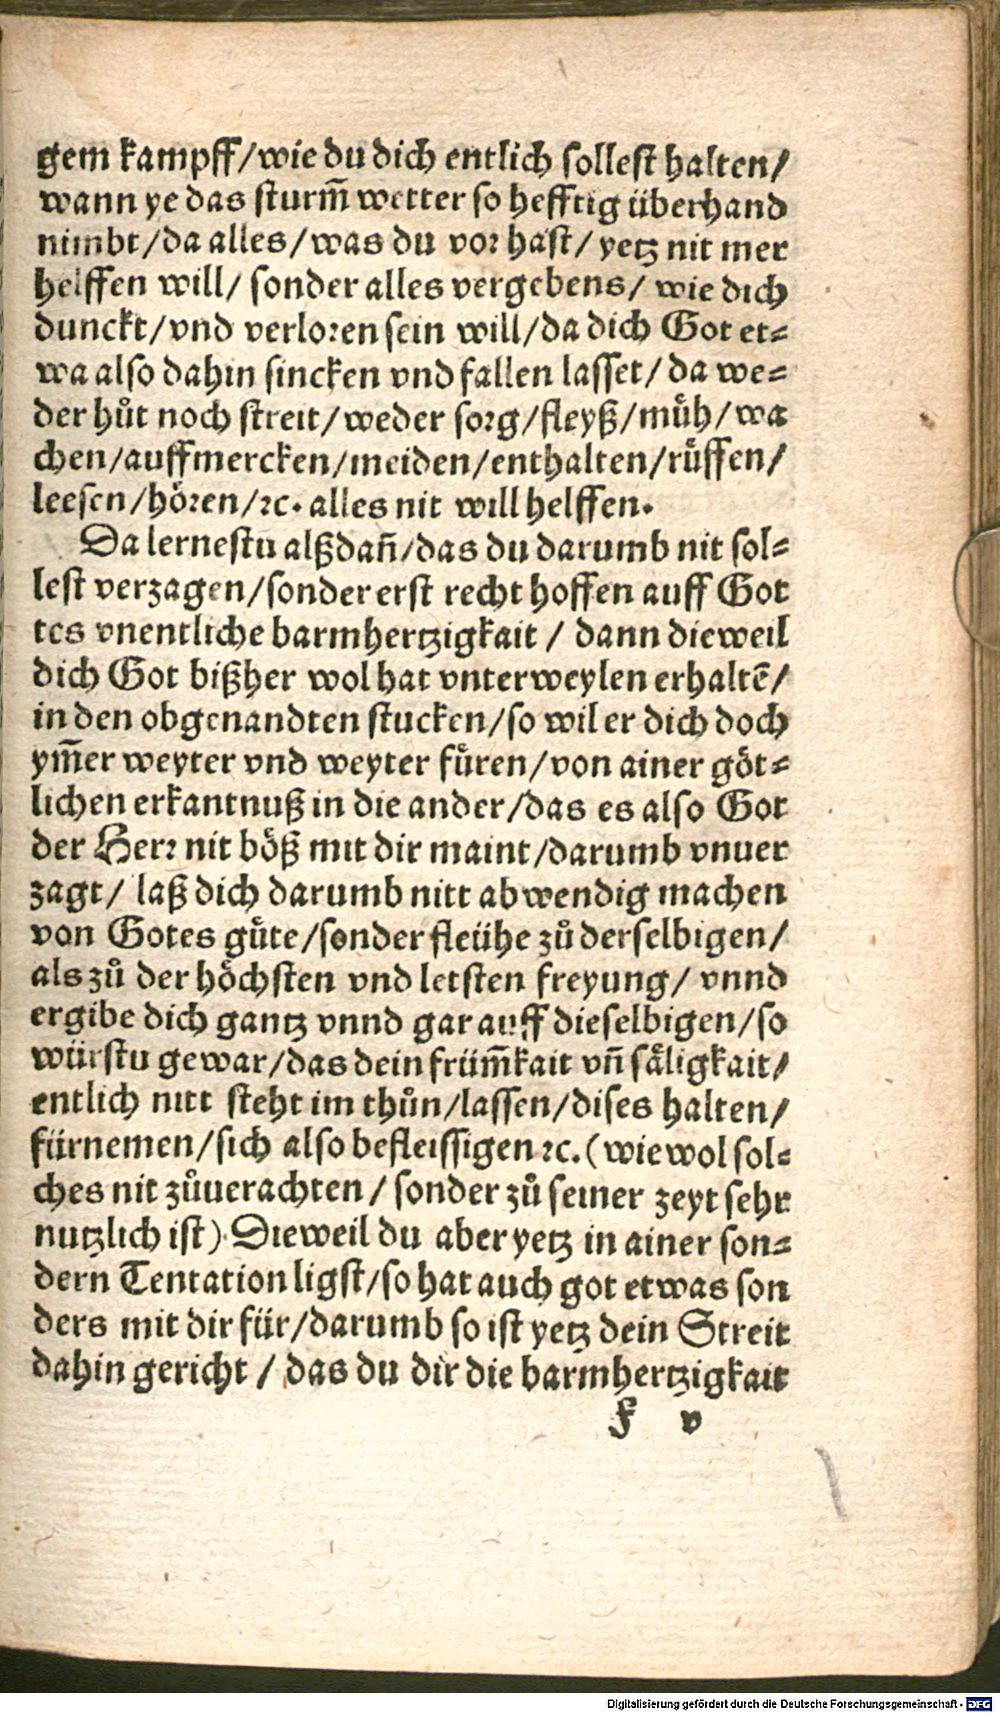 gem kampff/wie du dich entlich sollest halten/
wann ye das sturm̃ wetter so hefftig überhand
nimbt/da alles/was du vor hast/ yetz nit mer
helffen will/ sonder alles vergebens/ wie dich
dunckt/vnd verloren sein will/da dich Got et⸗
wa also dahin sincken vnd fallen lasset/ da we⸗
der hůt noch streit/weder sorg/fleyß/můh/wa
chen/auffmercken/meiden/enthalten/růffen/
leesen/hören/ꝛc. alles nit will helffen.
Da lernestu alßdañ/das du darumb nit sol⸗
lest verzagen/sonder erst recht hoffen auff Got
tes vnentliche barmhertzigkait / dann dieweil
dich Got bißher wol hat vnterweylen erhaltẽ/
in den obgenandten stucken/so wil er dich doch
ym̃er weyter vnd weyter füren/von ainer göt⸗
lichen erkantnuß in die ander/das es also Got
der Herr nit böß mit dir maint/darumb vnuer
zagt/ laß dich darumb nitt abwendig machen
von Gotes gůte/sonder fleühe zů derselbigen/
als zů der höchsten vnd letsten freyung/ vnnd
ergibe dich gantz vnnd gar auff dieselbigen/so
würstu gewar/das dein früm̃kait vñ säligkait/
entlich nitt steht im thůn/lassen/dises halten/
fürnemen/sich also befleissigen ꝛc. (wiewol sol⸗
ches nit zůuerachten / sonder zů seiner zeyt sehr
nutzlich ist) Dieweil du aber yetz in ainer son⸗
dern Tentation ligst/so hat auch got etwas son
ders mit dir für/darumb so ist yetz dein Streit
dahin gericht / das du dir die barmhertzigkait
f v
Digitalisierung gefördert durch die Deutsche Forschungsgemeinschaft - DFG